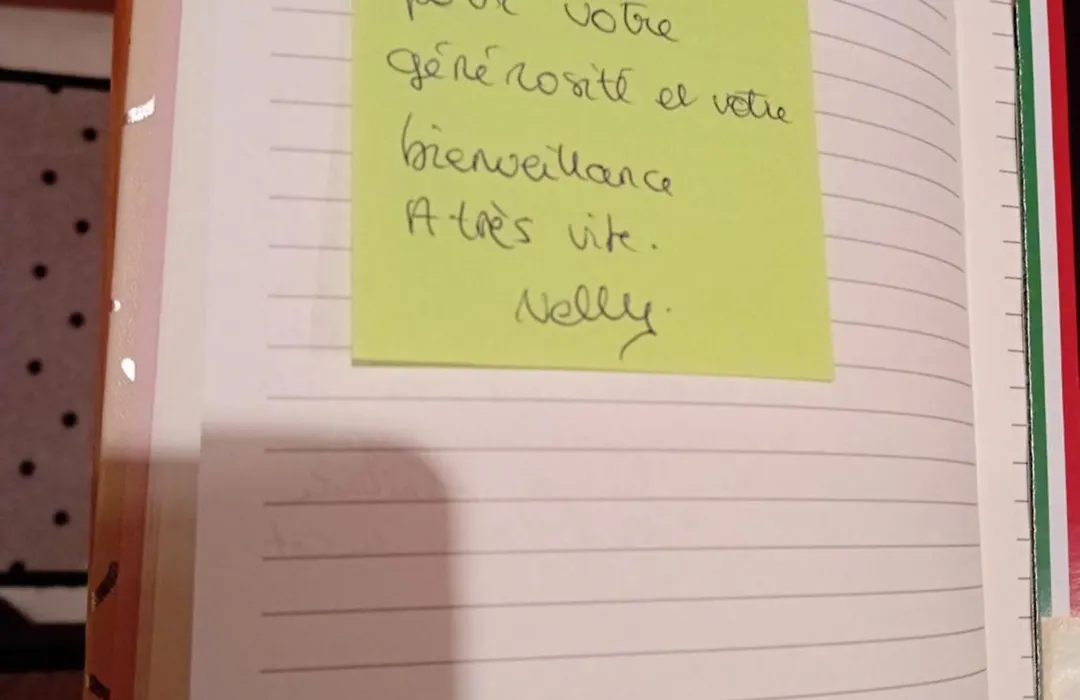 pour votre
générosité et votre
bienveillance
A très vite.
Nelly.